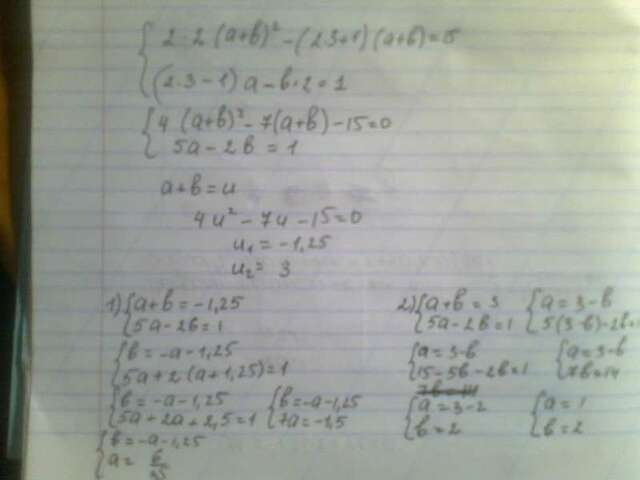 2·2 (a+b)² - (2·3+1)(a+b) = 15
(2·3-1) a - b·2 = 1
4 (a+b)² - 7(a+b) - 15 = 0
5a - 2b = 1
a+b = u
4u² - 7u - 15 = 0
u₁ = -1,25
u₂ = 3
1) a+b = -1,25
5a - 2b = 1
b = -a-1,25
5a + 2(a+1,25) = 1
b = -a-1,25
5a + 2a + 2,5 = 1
b = -a-1,25
7a = -1,5
b = -a-1,25
a =
2) a+b = 3
5a - 2b = 1
a = 3-b
5(3-b)-2b
a = 3-b
15 - 5b - 2b = 1
a = 3-b
7b = 14
a = 3-2
b = 2
a = 1
b = 2